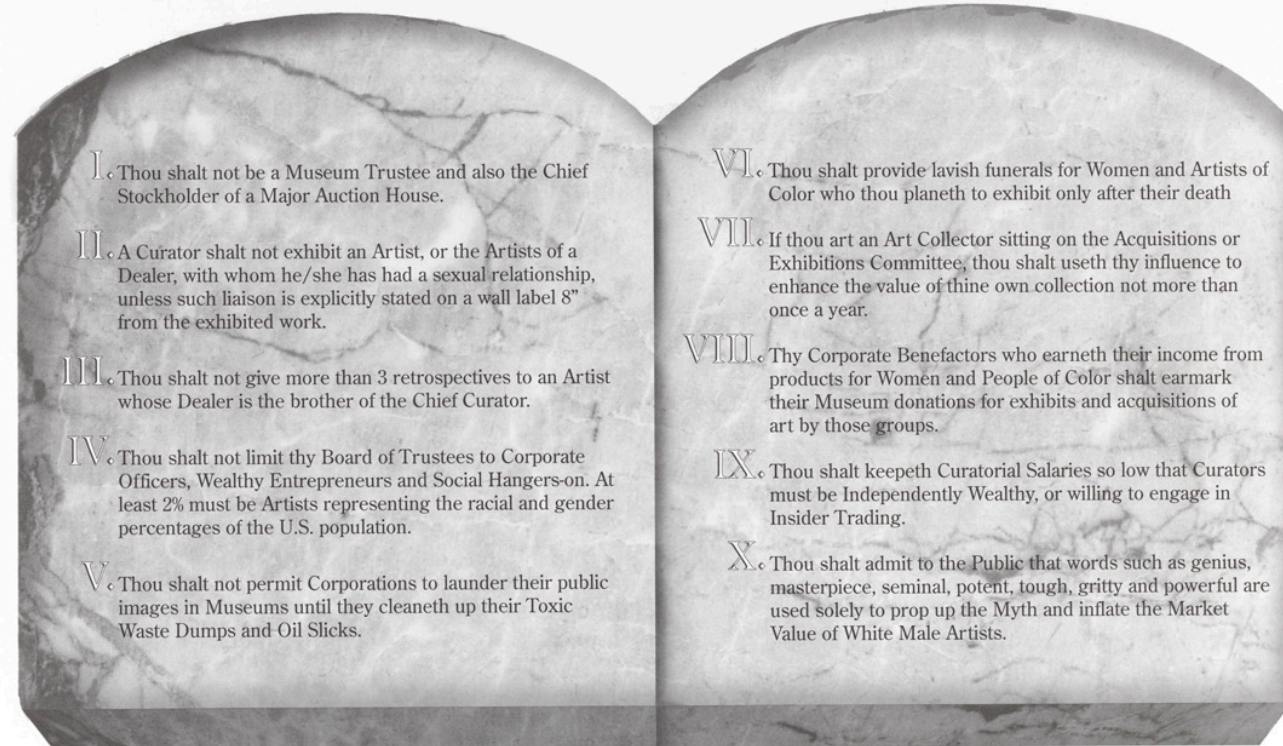 I. Thou shalt not be a Museum Trustee and also the Chief
Stockholder of a Major Auction House.
II. A Curator shalt not exhibit an Artist, or the Artists of a
Dealer, with whom he/she has had a sexual relationship,
unless such liaison is explicitly stated on a wall label 8”
from the exhibited work.
III. Thou shalt not give more than 3 retrospectives to an Artist
whose Dealer is the brother of the Chief Curator.
IV. Thou shalt not limit thy Board of Trustees to Corporate
Officers, Wealthy Entrepreneurs and Social Hangers-on. At
least 2% must be Artists representing the racial and gender
percentages of the U.S. population.
V. Thou shalt not permit Corporations to launder their public
images in Museums until they cleaneth up their Toxic
Waste Dumps and Oil Slicks.
VI. Thou shalt provide lavish funerals for Women and Artists of
Color who thou planeth to exhibit only after their death
VII. If thou art an Art Collector sitting on the Acquisitions or
Exhibitions Committee, thou shalt useth thy influence to
enhance the value of thine own collection not more than
once a year.
VIII. Thy Corporate Benefactors who earneth their income from
products for Women and People of Color shalt earmark
their Museum donations for exhibits and acquisitions of
art by those groups.
IX. Thou shalt keepeth Curatorial Salaries so low that Curators
must be Independently Wealthy, or willing to engage in
Insider Trading.
X. Thou shalt admit to the Public that words such as genius,
masterpiece, seminal, potent, tough, gritty and powerful are
used solely to prop up the Myth and inflate the Market
Value of White Male Artists.